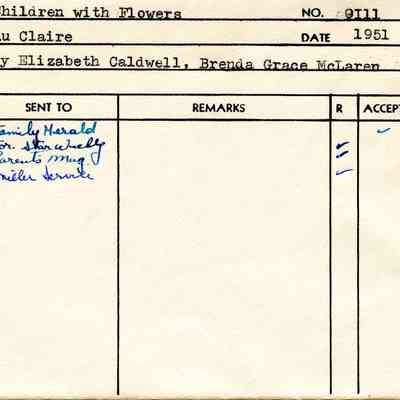 Children with Flowers NO. 9I11
au Claire DATE 1951
y Elizabeth Caldwell, Brenda Grace McLaren
SENT TO REMARKS R ACCEPT
Family Herald ✓
or. Star Weekly ✓
Parents Mag. ✓
Miller Service ✓